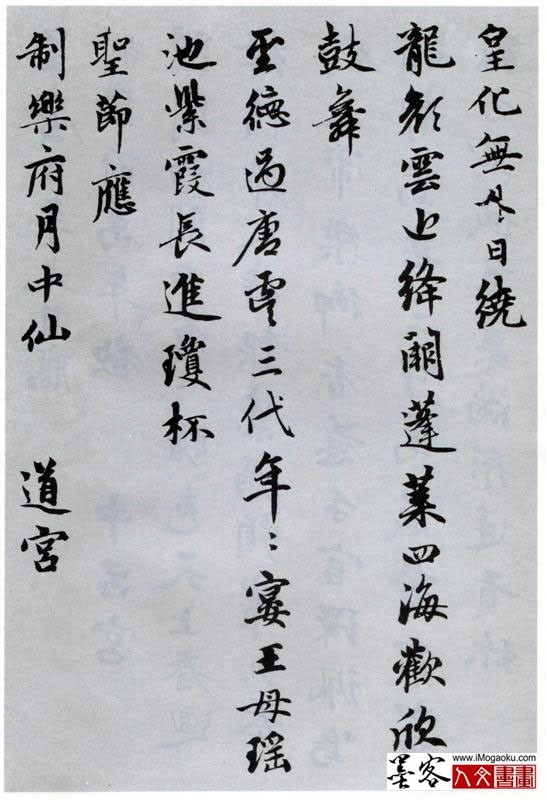 皇化無外日繞
龍顏雲近絳闕蓬萊四海歡欣
鼓舞
聖德過唐虞三代年々宴王母瑤
池紫霞長進瓊杯
聖節應
制樂府月中仙 道宮
www.iMogaoku.com
墨客 人文書畫